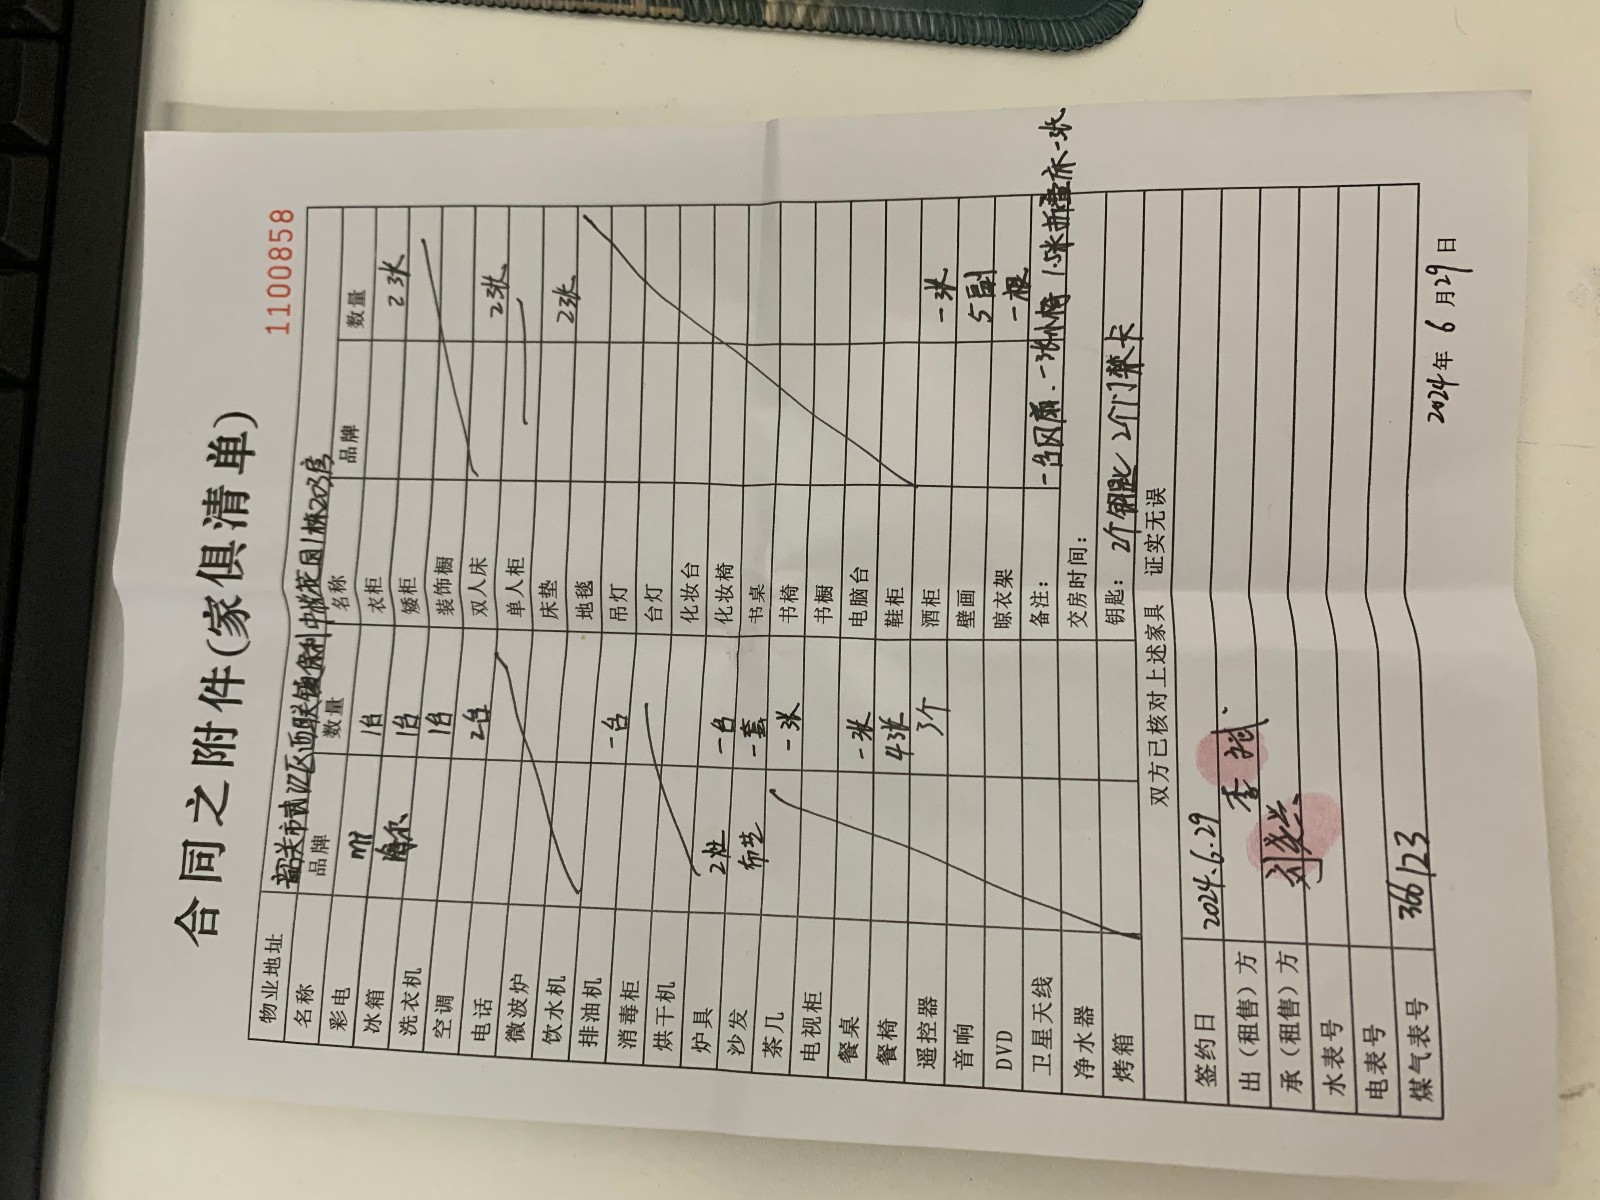 合同之附件(家俱清单)
1100858
物业地址 韶关市武江区西联镇保利中悦花园1栋203房
名称 品牌 数量 名称 品牌 数量
彩电 MI 1台 衣柜 2张
冰箱 海尔 1台 矮柜
洗衣机 1台 装饰橱
空调 2台 双人床 2张
电话 单人柜
微波炉 床垫 2张
饮水机 地毯
排油机 一台 吊灯
消毒柜 台灯
烘干机 化妆台
炉具 一台 化妆椅
沙发 布艺 一套 书桌
茶几 一张 书椅
电视柜 书橱
餐桌 一张 电脑台
餐椅 4张 鞋柜
遥控器 3个 酒柜 一张
音响 壁画 5副
DVD 晾衣架 一根
卫星天线 备注: 一台风扇.一张小椅
净水器 交房时间:
烤箱 钥匙: 2个钥匙 2个门禁卡
双方已核对上述家具 证实无误
签约日 2024.6.29
出(租售)方 李斌
承(租售)方
水表号
电表号
煤气表号 366123
2024年6月29日